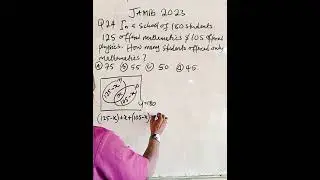 JAMB 2023
Q24 In a school of 180 students.
125 offered mathematics & 105 offered
physics. How many students offered only
mathematics?
(a) 75 (b) 55 (c) 50 (d) 45
125-x x 105-x
U=180
(125-x)+x+(105-x)=